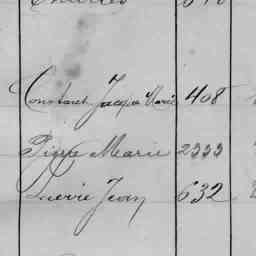 Charles
Constant Jacques Marie 408
Pierre Marie 2333
Pierre Jean 632